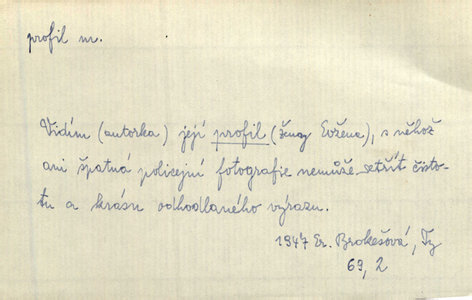 profil m.
Vidím (autorka) její profil (ženy Evžena), s něhož
ani špatná policejní fotografie nemůže setřít čisto-
tu a krásu odhodlaného výrazu.
1947 Er. Brokešová, Ty
69, 2